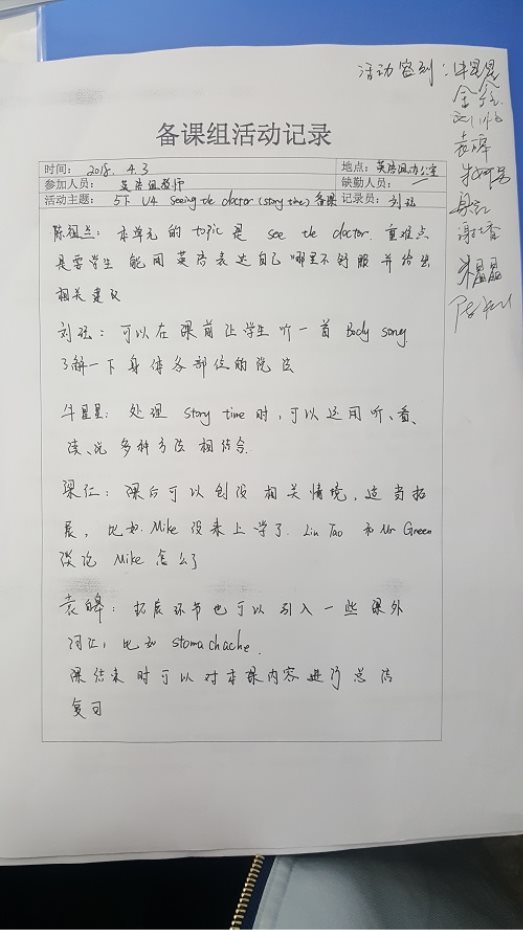 活动签到：牛星星
袁皞
梁仁
备课组活动记录
时间： 2018. 4.3 地点：英语组办公室
参加人员： 英语组教师 缺勤人员：
活动主题： 5下 U4 Seeing the doctor (story time) 备课 记录员：刘弦
陈祖兰：本单元的 topic 是 see the doctor. 重难点
是要学生 能用英语表达自己哪里不舒服并给出
相关建议
刘弦：可以在课前让学生听一首 Body song
了解一下身体各部位的说法
牛星星：处理 story time 时，可以运用听、看、
读、说多种方法相结合.
梁仁：课后可以创设 相关情境，适当拓
展，比如 Mike 没来上学了. Liu Tao 和 Mr Green
谈论 Mike 怎么了
袁皞：拓展环节也可以引入一些课外
词汇，比如 stomachache.
课结束时可以对本课内容进行总结
复习